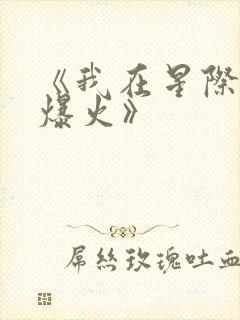 《我在星際
爆火》
屌丝玫瑰吐血